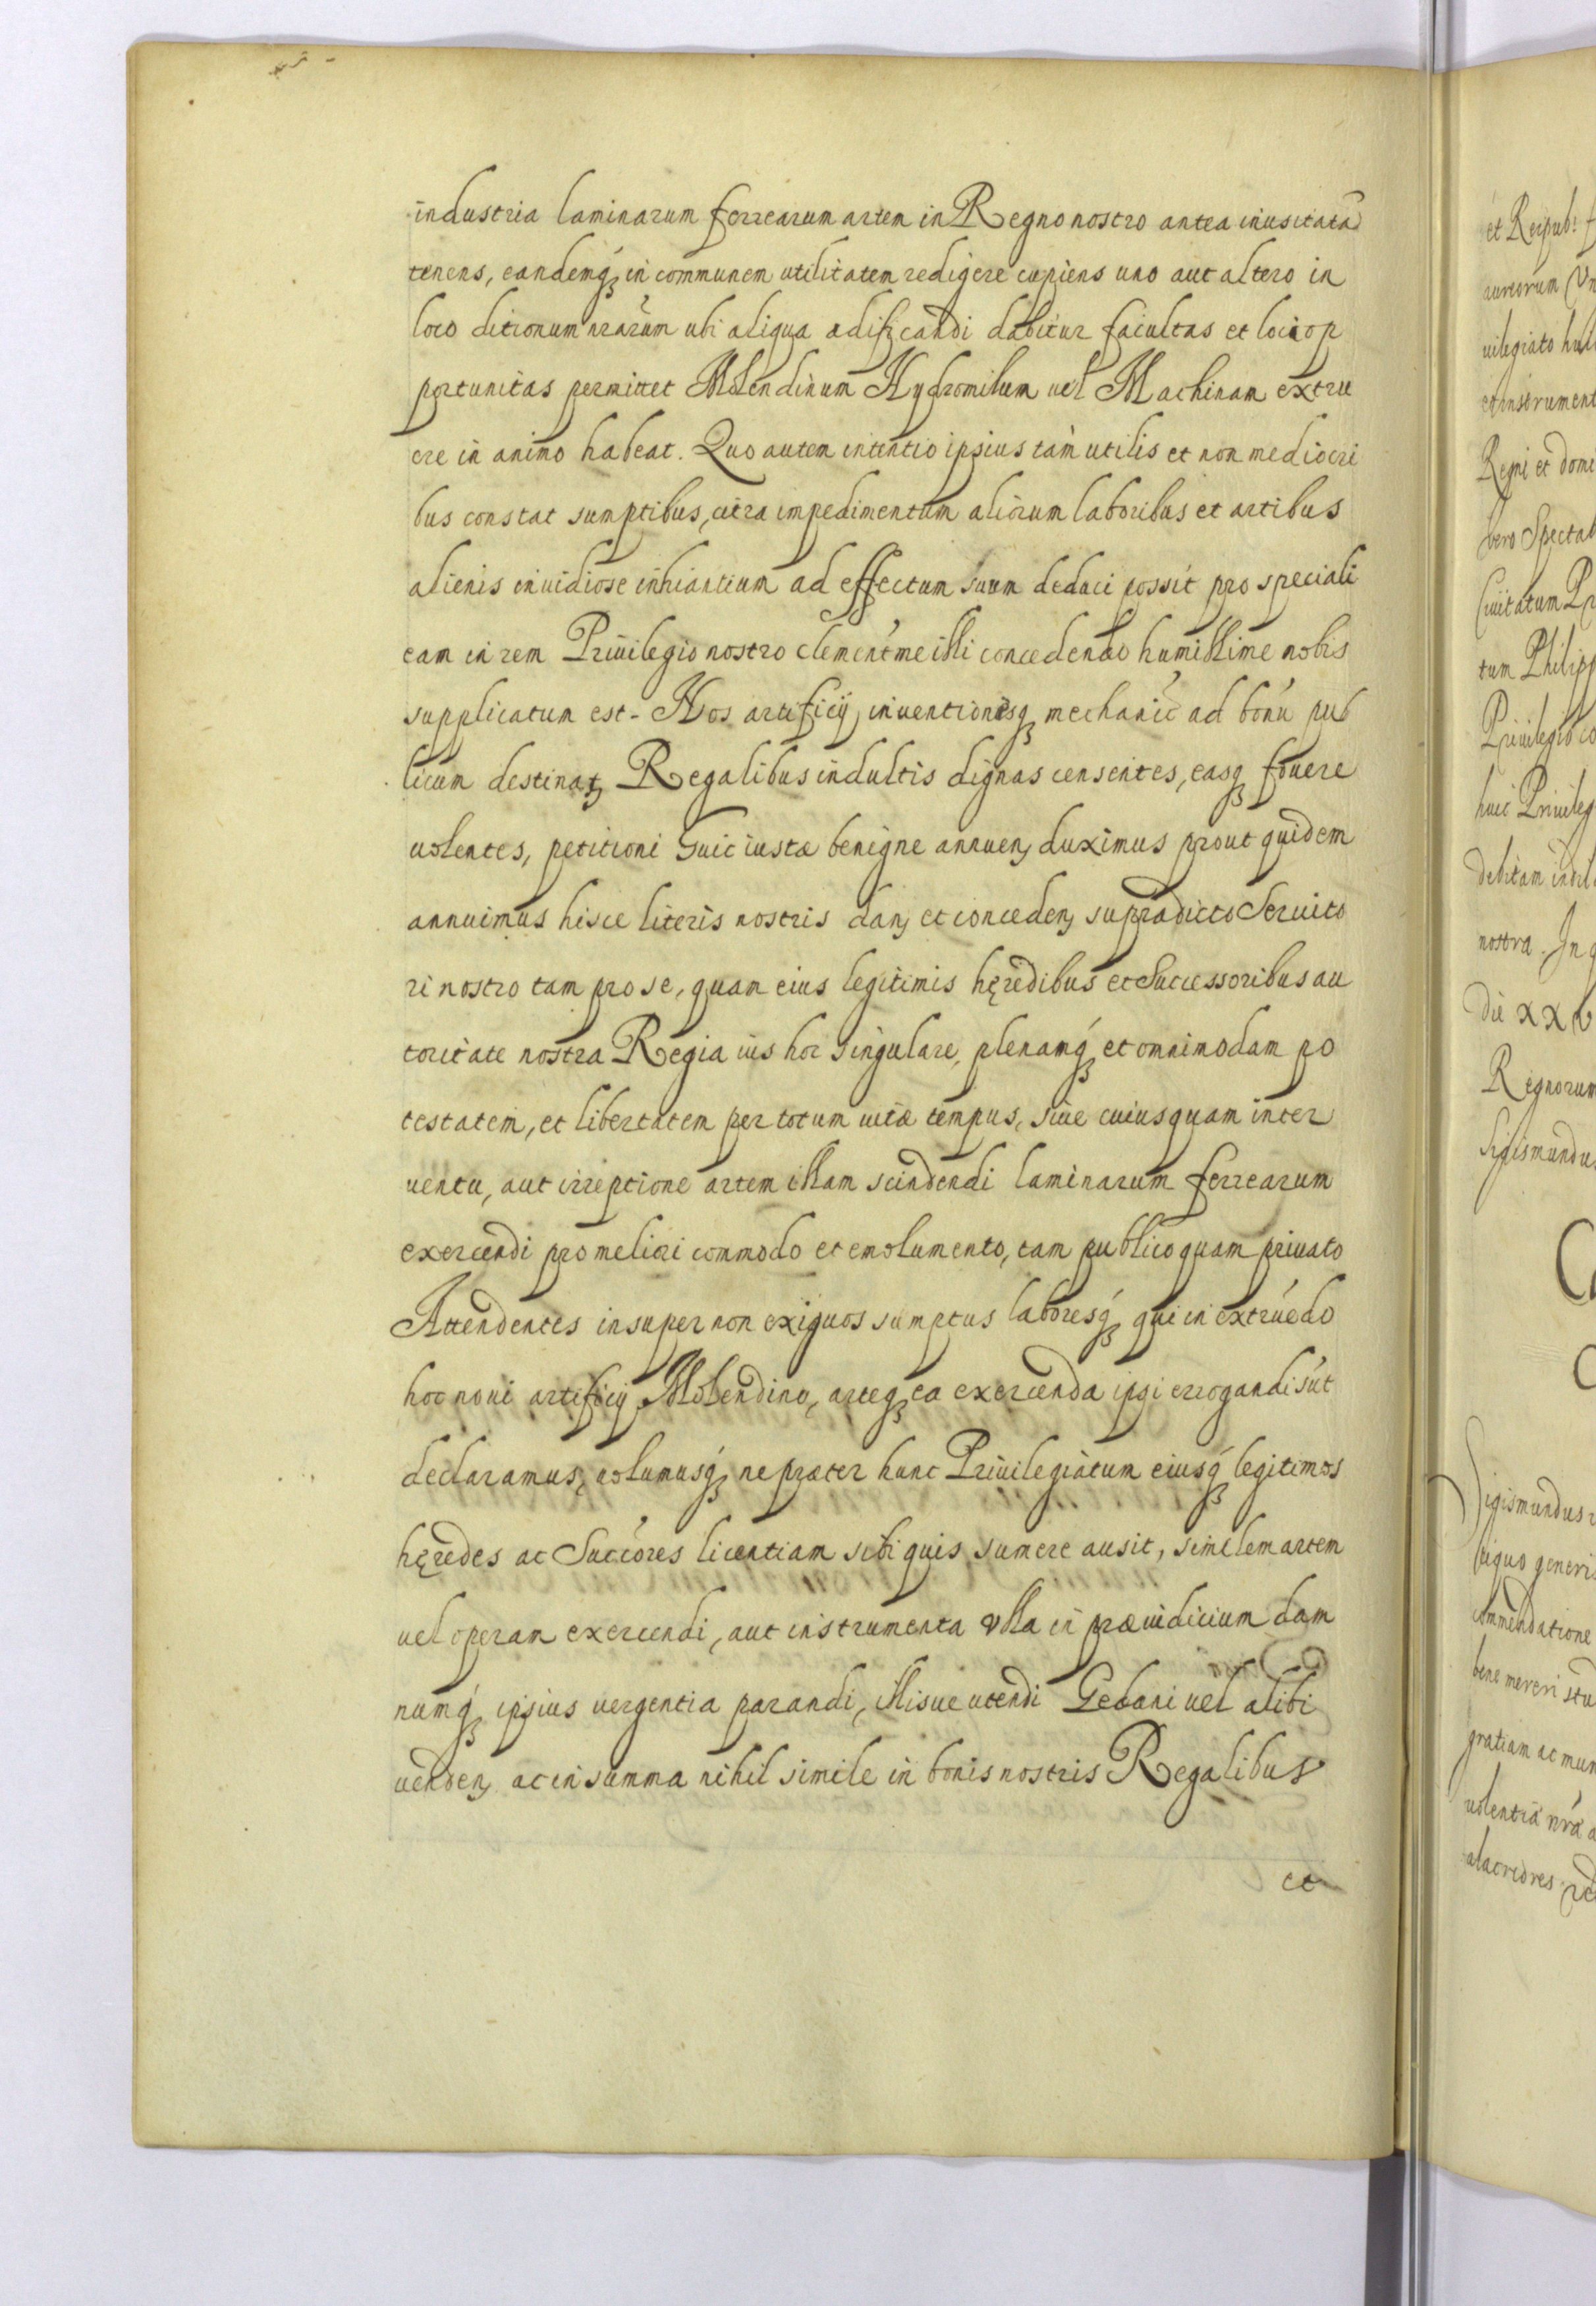 industria laminarum ferrearum artem in Regno nostro antea inusitatā
tenens, eandemq́ꝫ in communem utilitatem redigere cupiens uno aut altero in
loco ditionum nrārum ubi aliqua ædificandi dabitur facultas et loci op
portunitas permittet Molendinum Hydromilum uel Machinam extru
ere in animo habeat. Quo autem intentio ipsius tam utilis et non mediocri
bus constat sumptibus, citra impedimentum aliorum laboribus et artibus
alienis inuidiose inhiantium ad effectum suum deduci possit pro speciali
eam in rem Priuilegio nostro clementme illi concedendo humillime nobis
supplicatum est. Nos artificij inuentionesqꝫ mechanic̄ ad bonū pub
licum destinatꝫ Regalibus indultis dignas censentes, easqꝫ fouere
uolentes, petitioni huic iustæ benigne annuenꝫ duximus prout quidem
annuimus hisce literis nostris danꝫ et concedenꝫ supradicto Seruito
ri nostro tam pro se, quam eius legitimis hęredibus et Successoribus au
toritate nostra Regia ius hoc singulare, plenamq́ꝫ et omnimodam po
testatem, et libertatem per totum uitæ tempus, siue cuiusquam inter
uentu, aut irreptione artem illam scindendi laminarum ferrearum
exercendi pro meliori commodo et emolumento, tam publico quam priuato
Attendentes insuper non exiguos sumptus laboresq́ꝫ qui in extruēdo
hoc noui artificij Molendino, arteqꝫ ea exercenda ipsi errogandi sūt
declaramus, uolumusq́ꝫ ne præter hunc Priuilegiatum eiusq́ꝫ legitimos
hęredes ac Succ̄ores licentiam sibi quis sumere ausit, similem artem
uel operam exercendi, aut instrumenta vlla in præiudicium dam
numq́ꝫ ipsius uergentia parandi, illisue utendi Gedani uel alibi
uendenꝫ ac in summa nihil simile in bonis nostris Regalibus
et
et Reipub:
aureorum Vn
uilegiato hui
et instrument
Regni et domi
vero Spectab
Ciuitatum Pr
tum Philipp
Priuilegio co
huic Priuileg
debitam indil
nostra. In q
die XXV
Regnorum
Sigismundus
Sigismundus
tiquo generis
commendatione
bene mereri stu
gratiam ac mun
uolentiā nrā a
alacriores